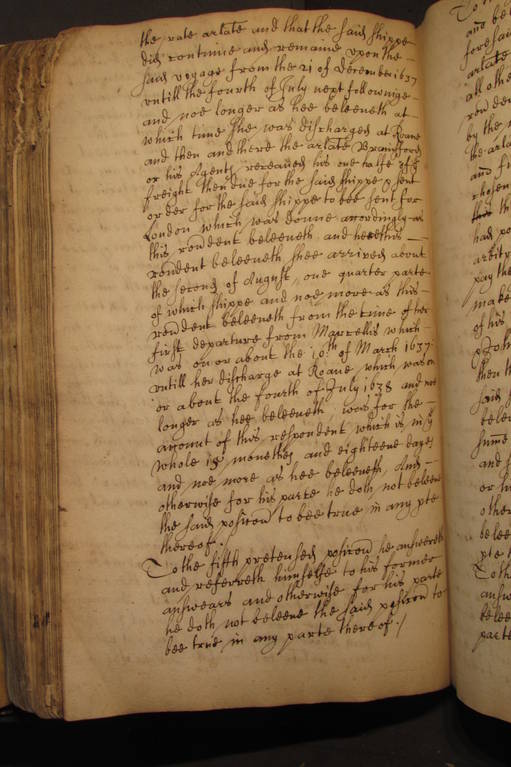 the rate arlate and that the said shippe
did continue and remaine upon the
said voyage from the 21 of december 1637
untill the fourth of July next followinge
and noe longer as hee beleeveth at
which time she was discharged at Roane
and then and there the arlate
or his Agents receaved his one halfe of ye
freight then due for the said shippe & sent
order for the said shippe to bee sent for
London which was donne accordingly as
this rondent beleeveth and
rondent beleeveth shee arrived about
the second of August, one quarter parte
of which shippe and noe more as this
rondent beleeveth from the time of her
first departure from Marcellis which
was on or about the 10th of March 1637
untill her discharge at Roane which was on
or about the fourth of July 1638 and noe
longer as hee beleeveth was for the
account of this respondent which is in ye
whole 15 monethes and eighteene dayes
and noe more as hee beleeveth, And
otherwise for his parte he doth not beleeve
the said posicon to bee true in any pte
thereof./
To the fifth pretensed posicon he answereth
and referreth himselfe to his former
answears and otherwise for his parte
he doth not beleeve the said posicon to
bee true in any parte thereof./
To
and
foresaid
arlate
all othe
ronden
by the
the arla
and
chosen
the
had
arbitr
pay the
make
of his
John
then
said
belee
sume
and
or hi
other
belee
pte
To th
answ
belee
parte